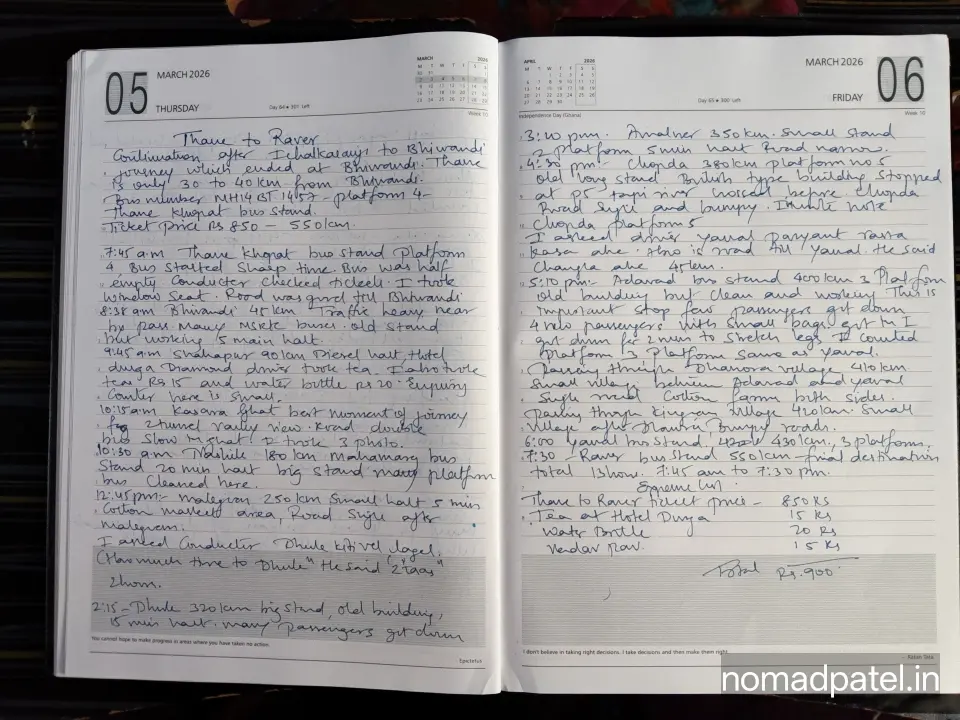 05
MARCH 2026
THURSDAY
Day 64 • 301 Left
MARCH 2026
Week 10
Thane to Raver
Continuation after Ichalkaranji to Bhiwandi
journey which ended at Bhiwandi. Thane
is only 30 to 40 km from Bhiwandi.
Bus number MH14BT 1457 - platform 4-
Thane Khopat bus stand.
Ticket Price Rs 850 - 550km.
7:45 am Thane Khopat bus stand Platform
4, Bus started sharp time. Bus was half
empty conductor checked ticket. I took
window seat. Road was good till Bhiwandi
8:38 am Bhiwandi 45 km Traffic heavy near
by pass. Many MSRTC buses. old stand
but working 5 main halt.
9:45 am Shahapur 90 km Diesel halt, Hotel
durga Diamond driver took tea. I also took
tea Rs 15 and water bottle Rs 20. Enquiry
Counter here is small.
10:15 am Kasara Ghat best moment of journey
2 tunnel valley view. Road double
bus slow in ghat I took 3 photo.
10:30 am Nashik 180 km Mahamarg bus
Stand 20 min halt big stand many platform
bus cleaned here.
12:45 pm:- malegaon 250 km Small halt 5 min
Cotton market area, Road Single after
malegaon.
I asked Conductor Dhule kiti vel lagel.
(How much time to Dhule" He said "2 taas"
2 hours.
2:15 - Dhule 320 km big stand, old building,
15 min halt. many passengers got down
You cannot hope to make progress in areas where you have taken no action.
Epictetus
APRIL 2026
MARCH 2026
06
FRIDAY
Day 65 • 300 Left
Week 10
Independence Day (Ghana)
3:20 pm. Amalner 350 km. Small stand
2 platform 5 min halt Road narrow.
4:30 pm - Chopda 380 km platform no 5
old long stand British type building stopped
at P5 tapi river crossed before Chopda
Road Single and bumpy. I wrote note
Chopda platform 5
I asked driver yaval paryant rasta
kasa ahe. How is road till yaval. He said
Changla ahe 45 km.
5:10 pm:- Adavad bus stand 400 km 3 Platform
old building but clean and working This is
important stop few passengers got down
4 new passengers with small bags got in I
got down for 2 min to stretch legs I counted
platform 3 Platform same as yaval.
Passing through Dhanora village 410 km
Small village between Adavad and yaval
Single road Cotton farms both sides.
Passing through Kingaon village 420 km. Small
village after Dhanora Bumpy roads.
6:00 yaval bus stand, 430 km., 3 platforms.
7:30 - Raver bus stand 550 km - final destination
total 13 hour. 7:45 am to 7:30 pm.
Expense list -
Thane to Raver ticket price - 850 Rs
Tea at Hotel Durga 15 Rs
Water Bottle 20 Rs
Vadav pav. 15 Rs
Total Rs. 900
I don't believe in taking right decisions. I take decisions and then make them right.
- Ratan Tata
nomadpatel.in